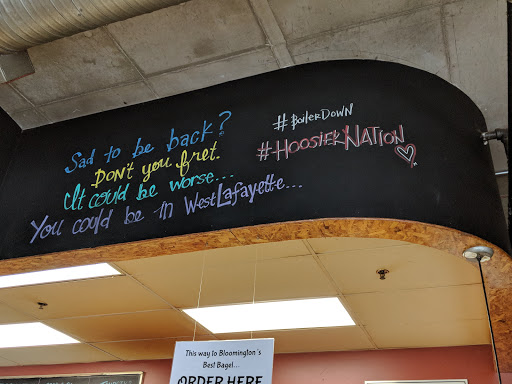 Sad to be back?
Don't you fret.
It could be worse...
You could be in West Lafayette...
#BoilerDown
#HoosierNation
This way to Bloomington's
Best Bagel...
ORDER HERE